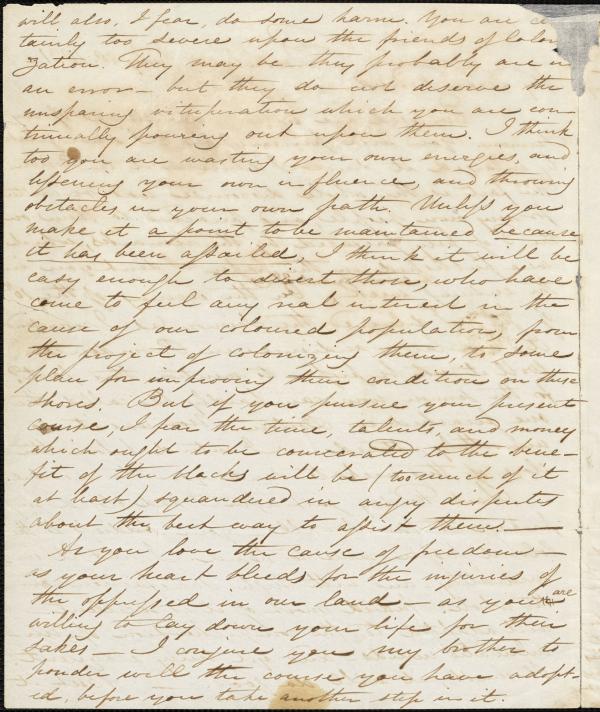 will also, I fear, do some harm. You are cer-
tainly too severe upon the friends of Coloni-
zation. They may be – they probably are in
an error – but they do not deserve the
unsparing vituperation which you are con-
tinually pouring out upon them. I think
too you are wasting your own energies, and
lessening your own influence, and throwing
obstacles in your own path. Unless you
make it a point to be maintained because
it has been assailed, I think it will be
easy enough to divert those, who have
come to feel any real interest in the
cause of our coloured population, from
the project of colonizing them, to some
plan for improving their condition on these
shores. But if you pursue your present
course, I fear the time, talents, and money
which ought to be consecrated to the bene-
fit of the blacks will be (too much of it
at least) squandered in angry disputes
about the best way to assist them. —
As you love the cause of freedom –
as your heart bleeds for the injuries of
the oppressed in our land – as you are
willing to lay down your life for their
sakes – I conjure you my brother to
ponder well the course you have adopt-
ed, before you take another step in it.